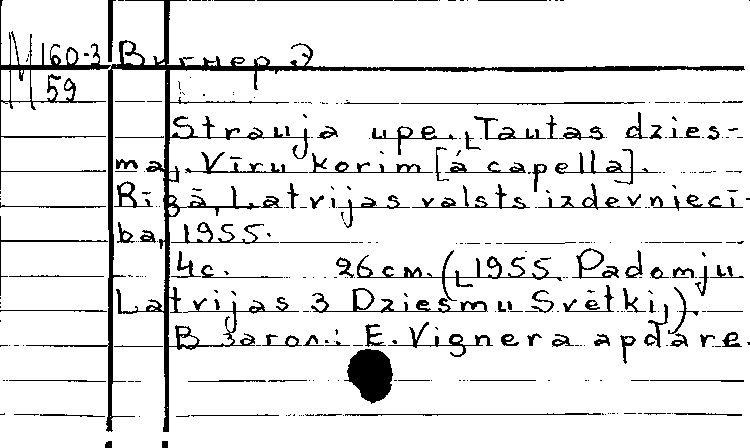 М160-3 Вигнер, Э
59
Strauja upe. „Tautas dzies-
ma„. Vīru korim [á capella].
Rīgā, Latvijas valsts izdevniecī-
ba, 1955.
4с. 26см. („1955. Padomju
Latvijas 3 Dziesmu Svētki„).
В загол.: E. Vignera apdare.